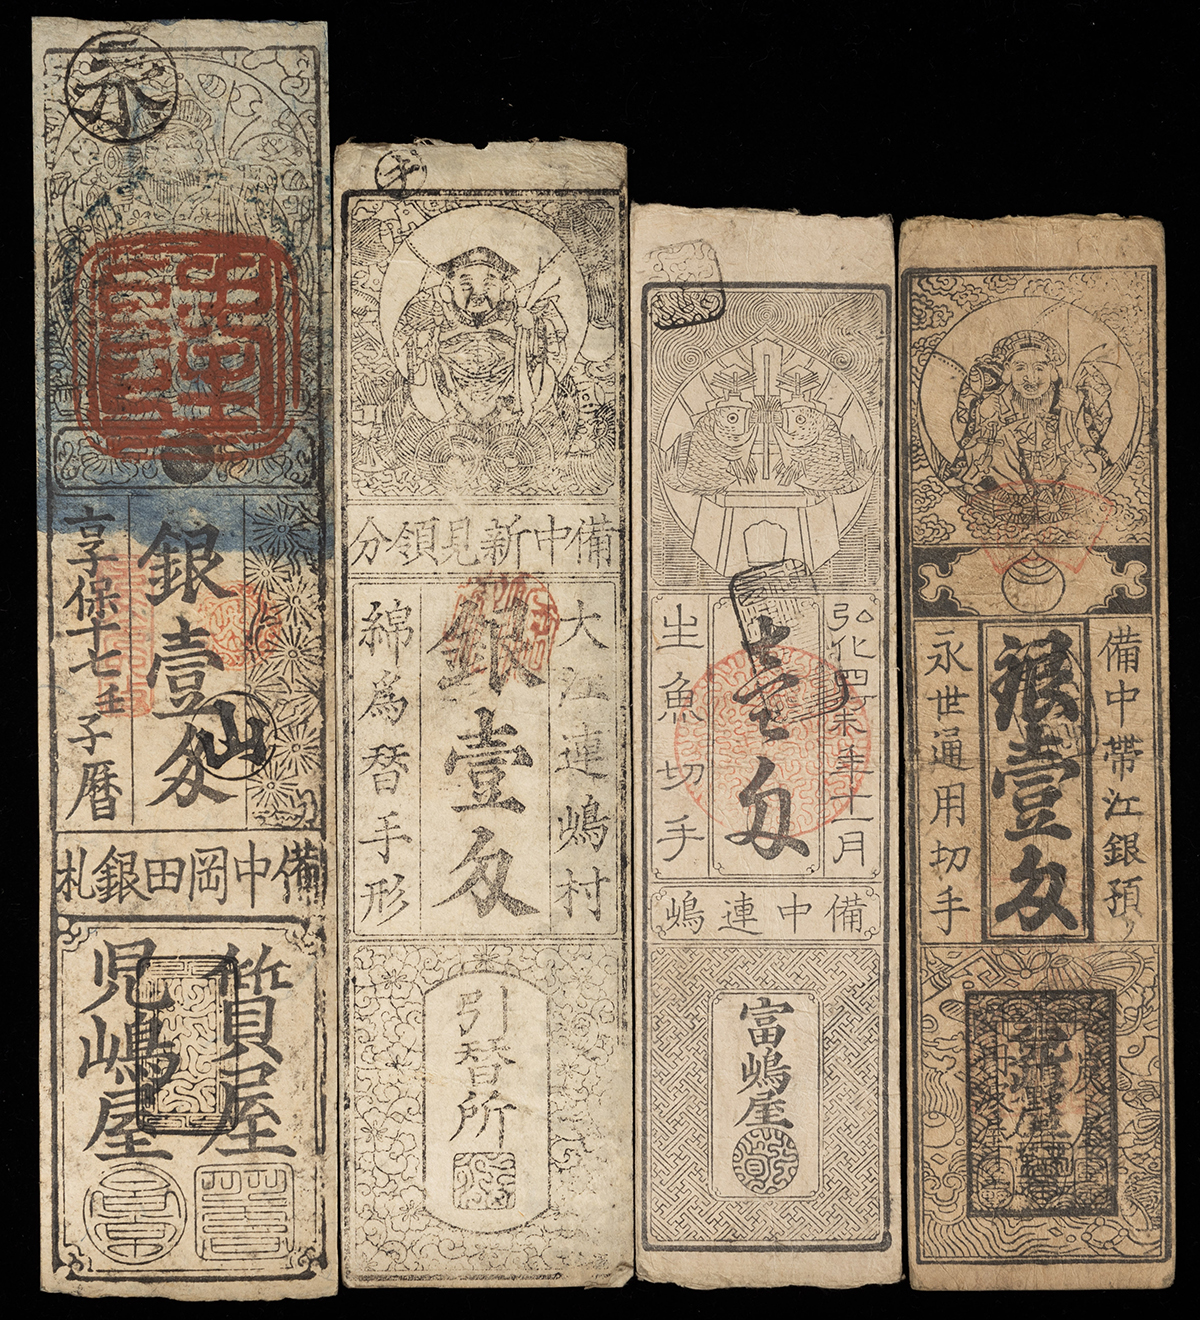 永
銀壹匁
山
享保十七壬子暦
備中岡田銀札
質屋
児嶋屋
備中新見領分
大江連嶋村
銀壹匁
綿為替手形
引替所
弘化四丁未年十一月
壱匁
生魚切手
備中連嶋
富嶋屋
備中帯江銀預り
銀壹匁
永世通用切手